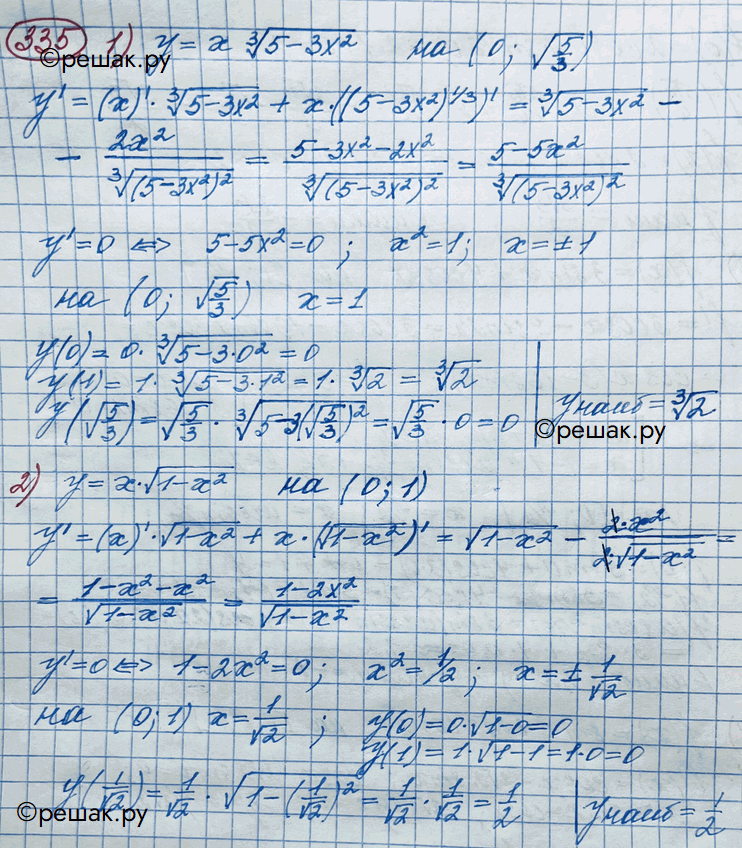 335 1) y = x ∛(5−3x²) на (0; √(5/3))
©решак.ру
y' = (x)' · ∛(5−3x²) + x·((5−3x²)^(1/3))' = ∛(5−3x²) −
− 2x²/∛((5−3x²)²) = (5−3x²−2x²)/∛((5−3x²)²) = (5−5x²)/∛((5−3x²)²)
y'=0 ⇔ 5−5x²=0 ; x²=1; x=±1
на (0; √(5/3)) x=1
y(0)= 0· ∛(5−3·0²) = 0
y(1)= 1· ∛(5−3·1²) = 1· ∛2 = ∛2
y(√(5/3)) = √(5/3) · ∛(5−3(√(5/3))²) = √(5/3) · 0 = 0
yнаиб = ∛2
©решак.ру
2) y = x·√(1−x²) на (0; 1)
y' = (x)' · √(1−x²) + x · (√(1−x²))' = √(1−x²) − 2·x²/2·√(1−x²) =
= (1−x²−x²)/√(1−x²) = (1−2x²)/√(1−x²)
y'=0 ⇔ 1−2x²=0; x²=1/2; x=± 1/√2
на (0; 1) x=1/√2 ; y(0)=0·√(1−0)=0
y(1)=1·√(1−1)=1·0=0
y(1/√2)=1/√2 · √(1−(1/√2)²) = 1/√2 · 1/√2 = 1/2
yнаиб = 1/2
©решак.ру